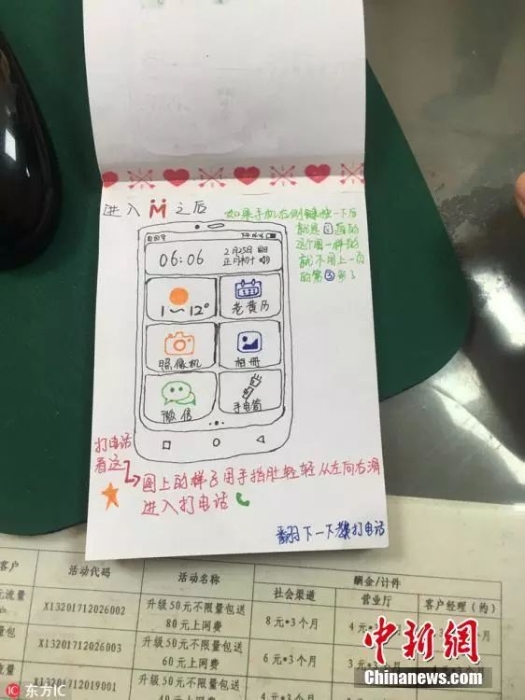 进入M之后
如果手机右侧键按一下后
就是
这个图一样的
就不用上一页
的第③步了
06:06
2月25日
1~12°
老黄历
照像机
相册
微信
手电筒
打电话
看这
图上的样子用手指肚轻轻从左向右滑
进入打电话
翻下一下打电话
客户
活动代码
活动名称
酬金/计件
社会渠道
营业厅
客户经理(约)
元流量
X13201712026002
升级50元不限量包送
80元上网费
8元*3个月
4元*3
量包
X13201712026003
升级50元不限量包送
60元上网费
6元*3个月
流量
X13201712019001
升级50元不限量包送
中新网
Chinanews.com
IC 东方IC